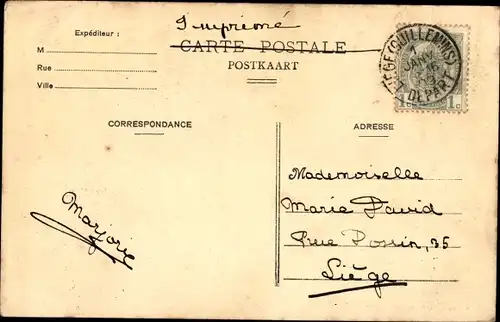 Expéditeur :
M
Rue
Ville
Imprimé
CARTE POSTALE
POSTKAART
LIEGE (GUILLEMINS)
1
JANV
DEPART
1c 1c
CORRESPONDANCE
ADRESSE
Marjorie
Mademoiselle
Marie David
Rue Possin, 35
Liège